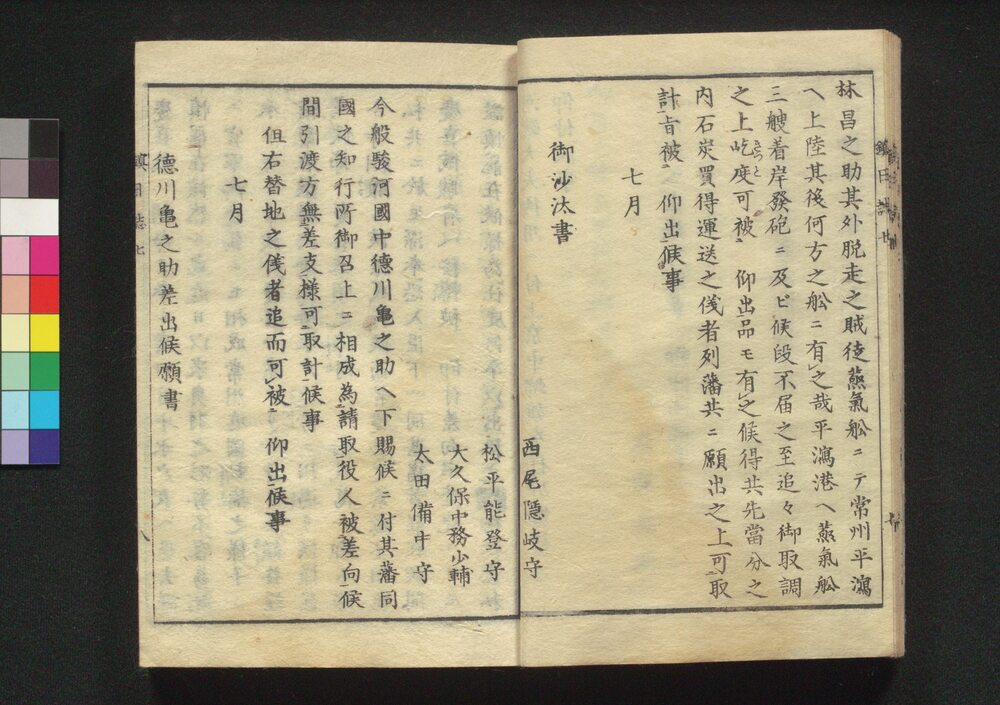 林昌之助其外脱走之賊徒蒸氣舩ニテ常州平潟
ヘ上陸其後何方之舩ニ有之哉平潟港ヘ蒸氣舩
三艘着岸發砲ニ及ヒ候段不届之至追々御取調
之上屹度可被　仰出品モ有之候得共先當分之
内石炭買得運送之儀者列藩共ニ願出之上可取
計旨被　仰出候事
七月
御沙汰書
西尾隠岐守
松平能登守
大久保中務少輔
太田備中守
今般駿河國中徳川亀之助ヘ下賜候ニ付其藩同
國之知行所御召上ニ相成為請取役人被差向候
間引渡方無差支様可取計候事
但右替地之儀者追而可被　仰出候事
七月
徳川亀之助差出候願書
鎮日誌七
八